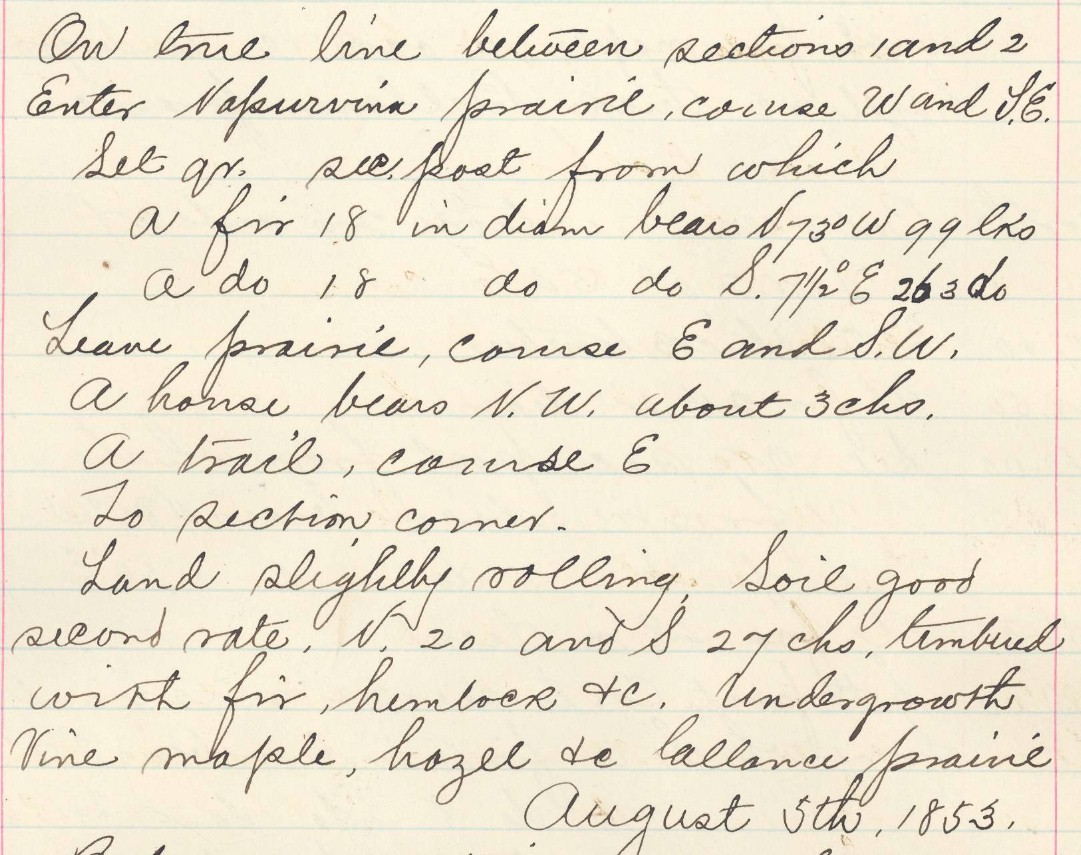 On true line between sections 1 and 2
Enter Napurvina prairie, course W and S.E.
Set qr. sec. post from which
A fir 18 in diam bears N 73° W 99 lks
a do 18 do do S. 71½° E 263 do
Leave prairie, course E and S.W.
A house bears N.W. about 3 chs.
A trail, course E
To section corner.
Land slightly rolling. Soil good
second rate. N. 20 and S 27 chs, timbered
with fir, hemlock &c. Undergrowth
Vine maple, hazel &c ballance prairie
August 5th, 1853.